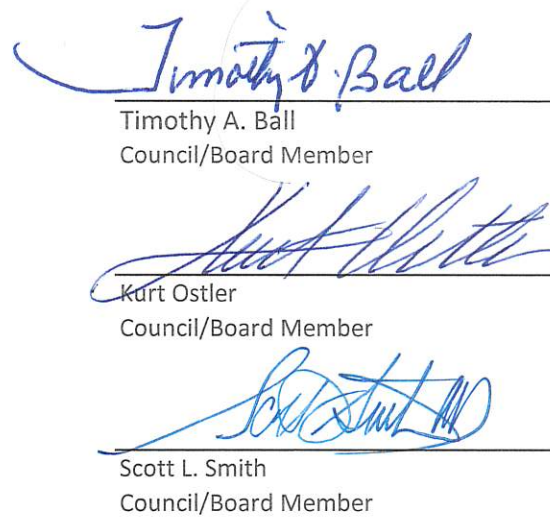 Timothy A. Ball
Timothy A. Ball
Council/Board Member
Kurt Ostler
Kurt Ostler
Council/Board Member
Scott L. Smith
Council/Board Member